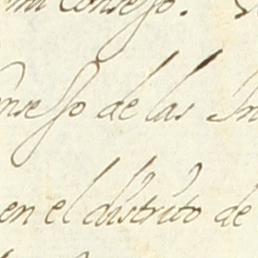 mi Consejo.
Consejo de las In
en el distrito de